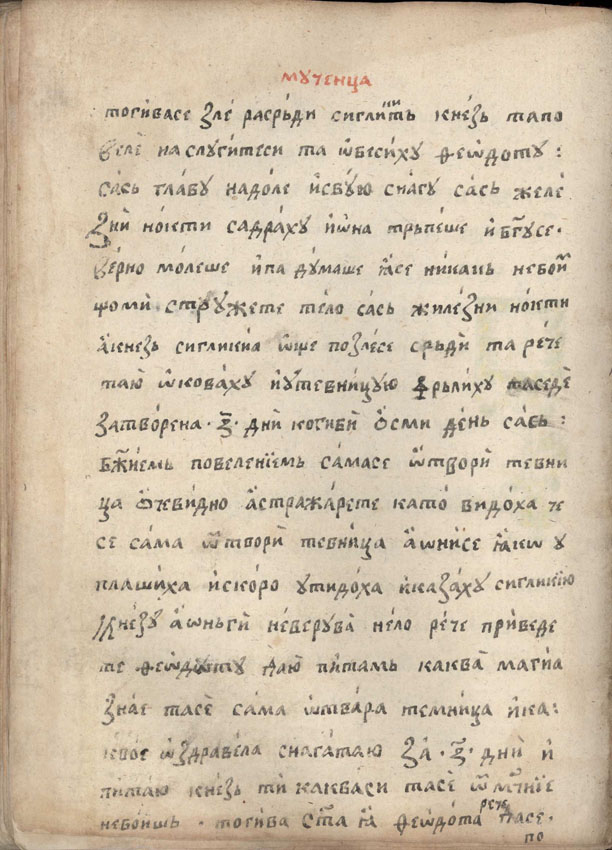 мꙋченца
тогивасе зле расрьди сиглитнь кнезь тапо
веле на слꙋгитеси та ѡбесихꙋ ѳеѡдотꙋ :
сась главꙋ надоле и свꙋю снагꙋ сась желе
зни нокти садрахꙋ и ѡна трьпеше и бг꙽ꙋсе ·
верно молеше и па дꙋмаше ꙗсе никакь небой
щоми стрꙋжете тело сась жилезни нокти
а кнезь сигликиа ѡще позлесе срьди та рече
таю ѡковахꙋ и ꙋ тевницꙋю фрьлихꙋ таседе
затворена · з҃ · дни когиби ѻсми день сась :
бж҃иемь повелением самасе ѿвори тевни
ца ѻчевидно а стражарете като видоха че
се сама ѿвори тевница а ѡнисе ꙗкѡ ꙋ
плашиха и скоро ꙋтидоха и казахꙋ сигликию
кнезꙋ а ѡньги неверꙋва нело рече приведе
те ѳеѡдотꙋ даю питамь каква магиа
знае тасе сама ѿвара темница и ка :
квое ѡздравела снагатаю за · з҃ · дни и
питаю кнезь ти какваси тасе ѿ мꙋч҃ние
небоишь · тогива ст҃а ѳеѡдота рече дасе ·
по